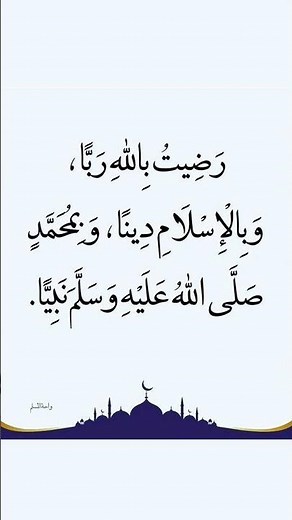 رَضِيتُ بِاللهِ رَبًّا،
وَبِالْإِسْلَامِ دِينًا، وَبِمُحَمَّدٍ
صَلَّى اللهُ عَلَيْهِ وَسَلَّمَ نَبِيًّا.
واحة المسلم